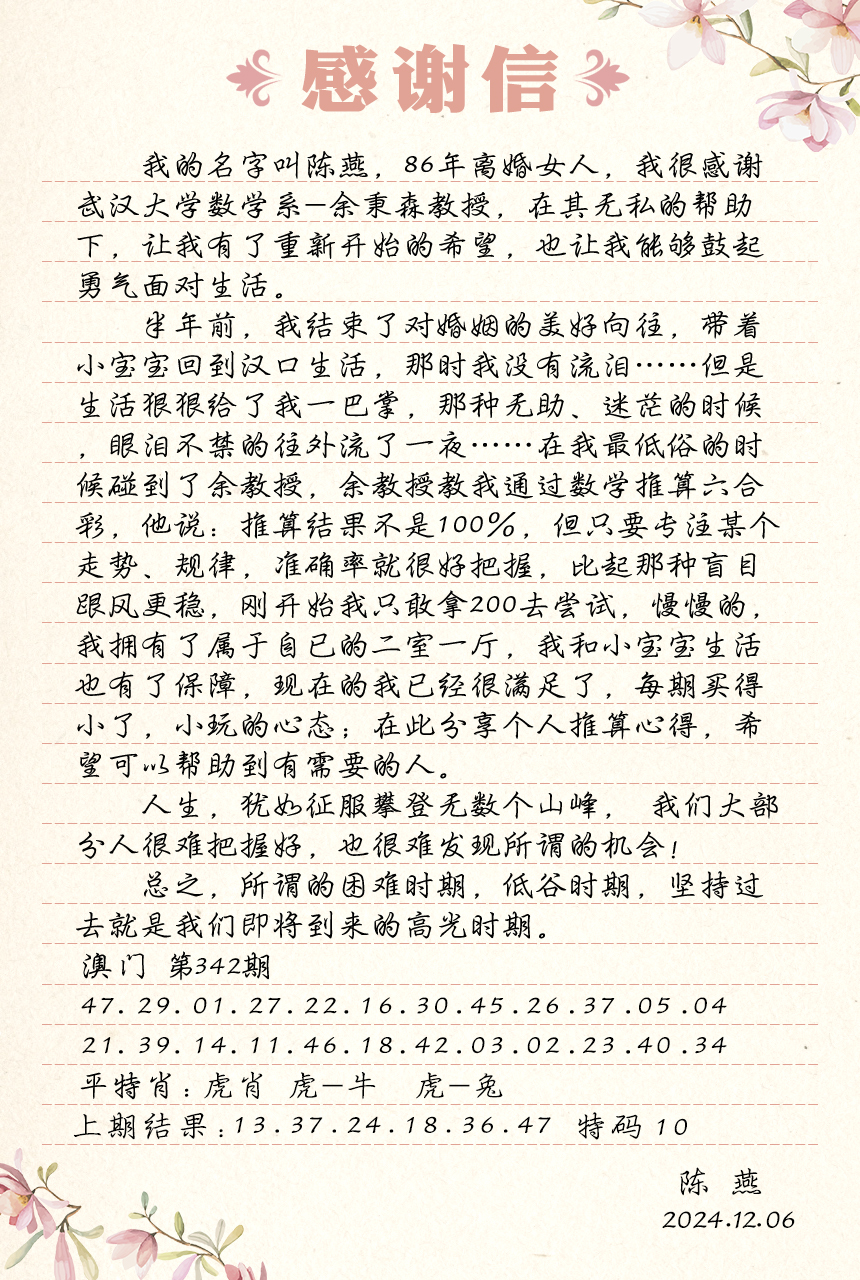 感谢信
我的名字叫陈燕，86年离婚女人，我很感谢
武汉大学数学系—余秉森教授，在其无私的帮助
下，让我有了重新开始的希望，也让我能够鼓起
勇气面对生活。
半年前，我结束了对婚姻的美好向往，带着
小宝宝回到汉口生活，那时我没有流泪……但是
生活狠狠给了我一巴掌，那种无助、迷茫的时候
，眼泪不禁的往外流了一夜……在我最低俗的时
候碰到了余教授，余教授教我通过数学推算六合
彩，他说：推算结果不是100%，但只要专注某个
走势、规律，准确率就很好把握，比起那种盲目
跟风更稳，刚开始我只敢拿200去尝试，慢慢的，
我拥有了属于自已的二室一厅，我和小宝宝生活
也有了保障，现在的我已经很满足了，每期买得
小了，小玩的心态；在此分享个人推算心得，希
望可以帮助到有需要的人。
人生，犹如征服攀登无数个山峰， 我们大部
分人很难把握好，也很难发现所谓的机会！
总之，所谓的困难时期，低谷时期，坚持过
去就是我们即将到来的高光时期。
澳门 第342期
47.29.01.27.22.16.30.45.26.37.05.04
21.39.14.11.46.18.42.03.02.23.40.34
平特肖：虎肖 虎—牛 虎—兔
上期结果：13.37.24.18.36.47 特码 10
陈 燕
2024.12.06